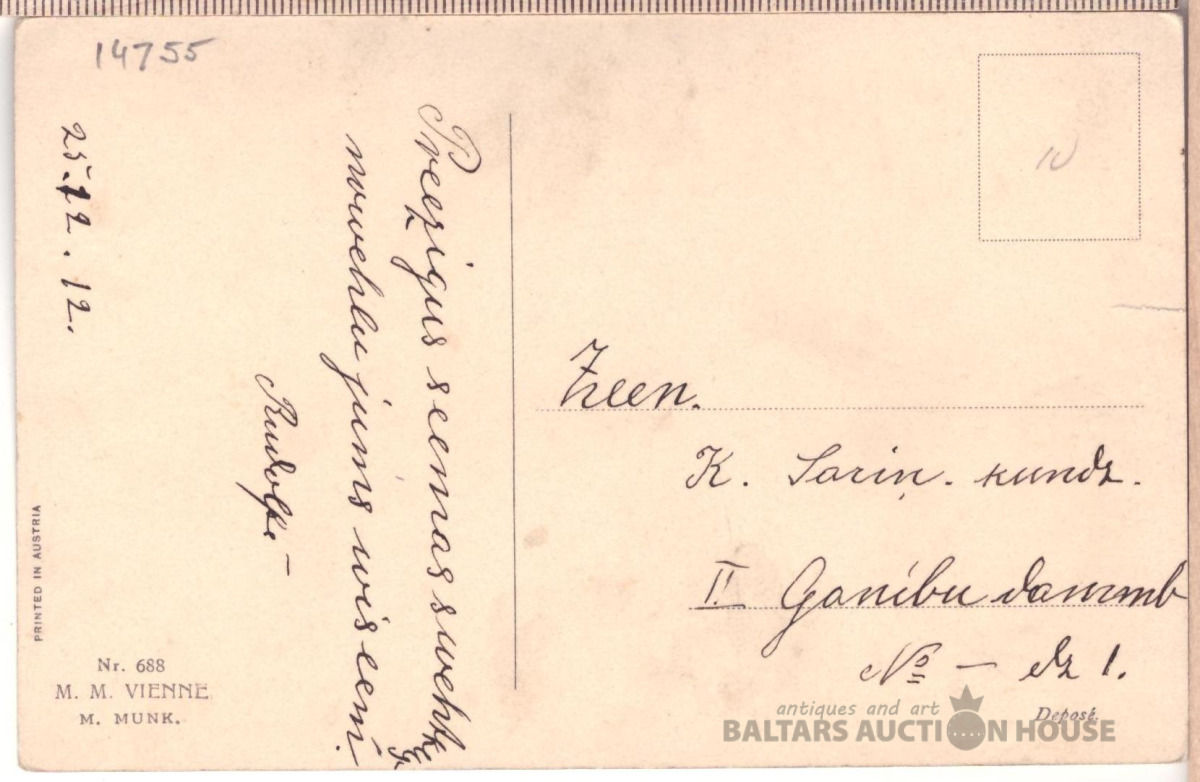 14755
Preezigus seemas swehtk
novehlu jums wiseem.
Rudolfs
25.12.12.
PRINTED IN AUSTRIA
Nr. 688
M. M. VIENNE
M. MUNK.
Zeen.
K. Sariņ. kundz.
II Ganibu damb
№ — dz 1.
Deposé.
antiques and art
BALTARS AUCTION HOUSE